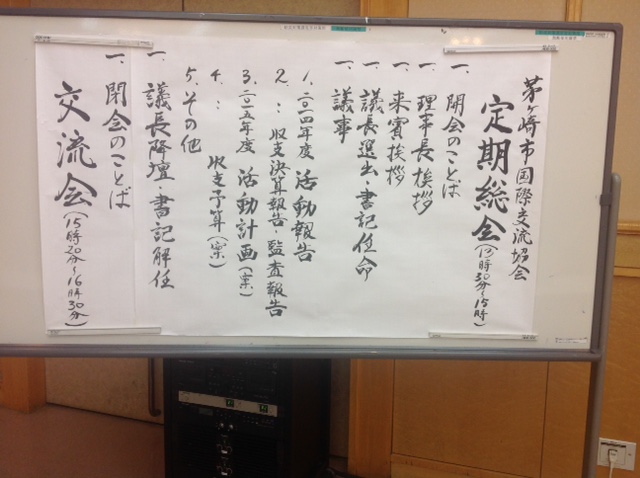 茅ヶ崎市国際交流協会
定期総会(13時30分～15時)
一、開会のことば
一、理事長挨拶
一、来賓挨拶
一、議長選出・書記任命
一、議事
1. 二〇一四年度 活動報告
2. 〃 収支決算報告・監査報告
3. 二〇一五年度 活動計画(案)
4. 〃 収支予算(案)
5. その他
一、議長降壇・書記解任
一、閉会のことば
交流会(15時20分～16時30分)